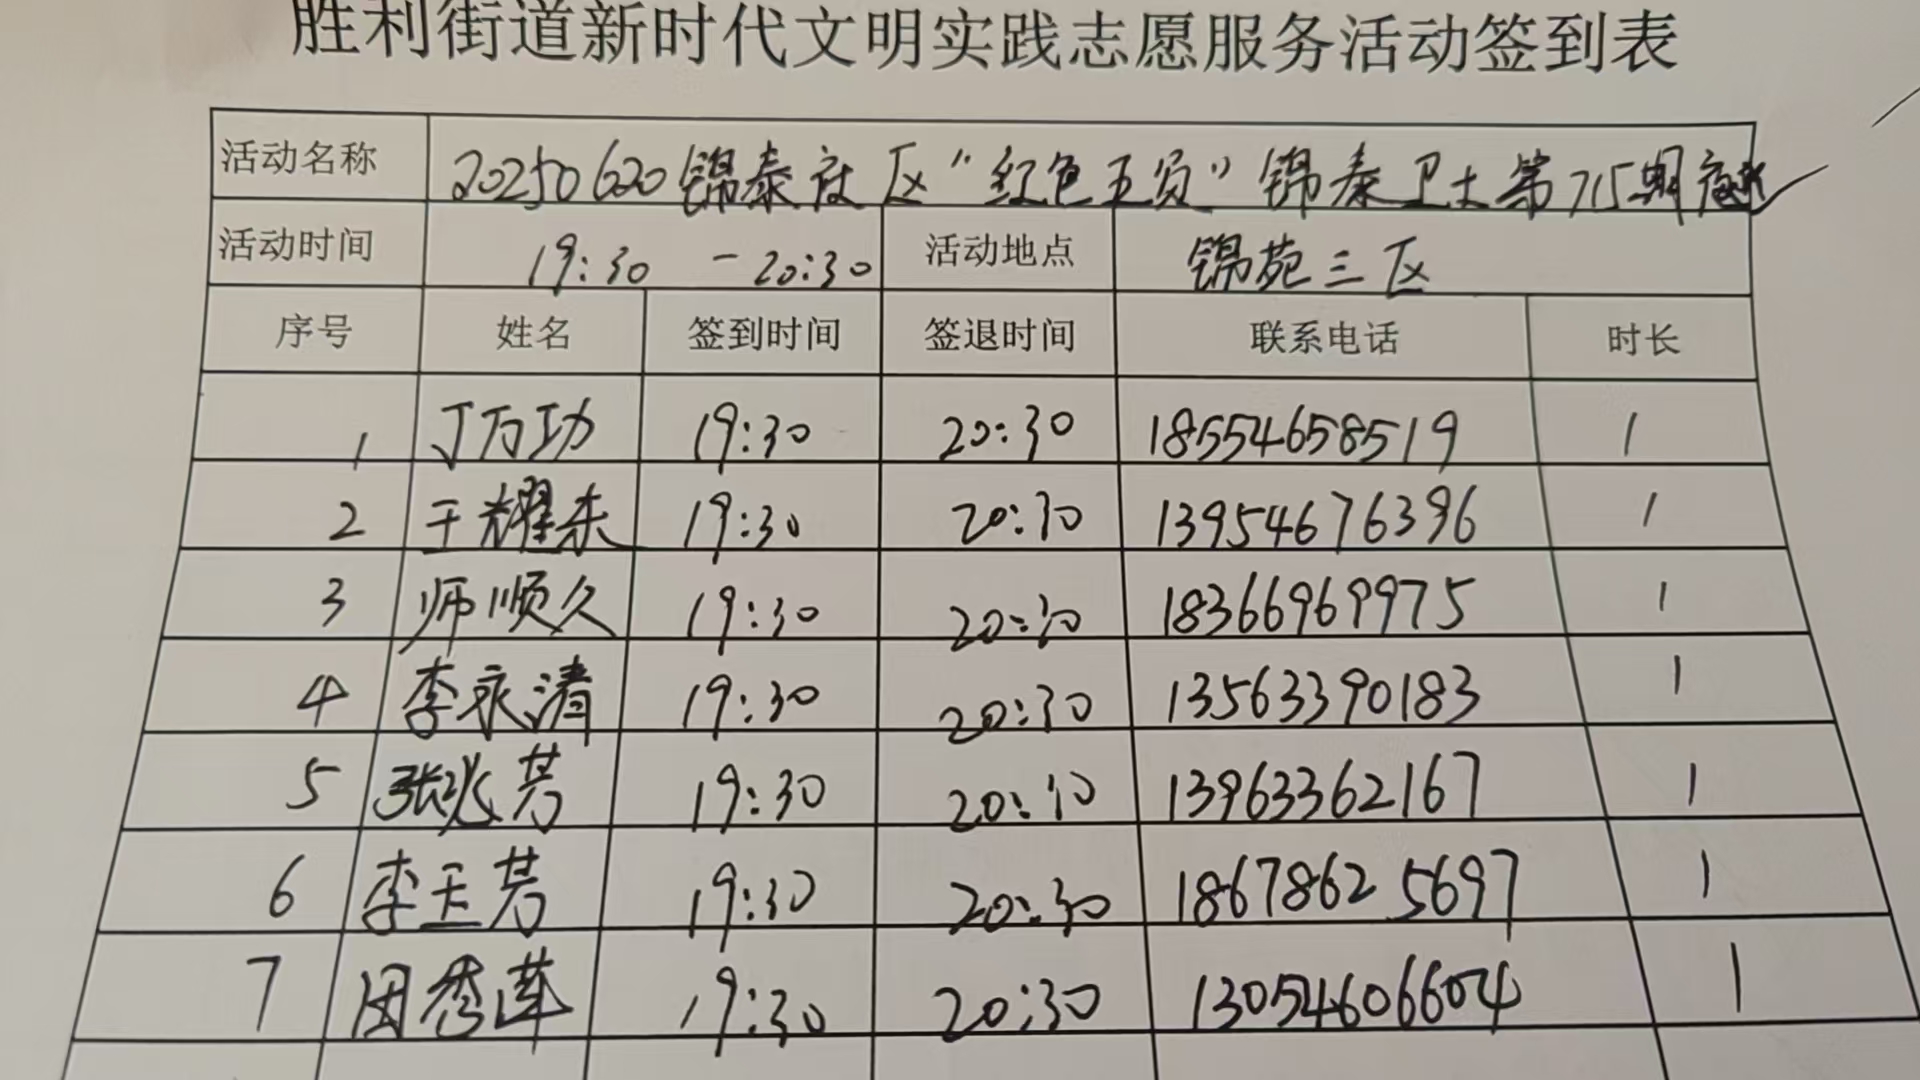 胜利街道新时代文明实践志愿服务活动签到表
活动名称 20250620锦泰社区“红色五员”锦泰卫士第715期夜巡
活动时间 19:30 -20:30 活动地点 锦苑三区
序号 姓名 签到时间 签退时间 联系电话 时长
1 丁万功 19:30 20:30 18554658519 1
2 王耀来 19:30 20:30 13954676396 1
3 师顺久 19:30 20:30 18366969975 1
4 李永清 19:30 20:30 13563390183 1
5 张兆芳 19:30 20:30 13963362167 1
6 李玉芳 19:30 20:30 18678625697 1
7 田秀莲 19:30 20:30 13054606604 1